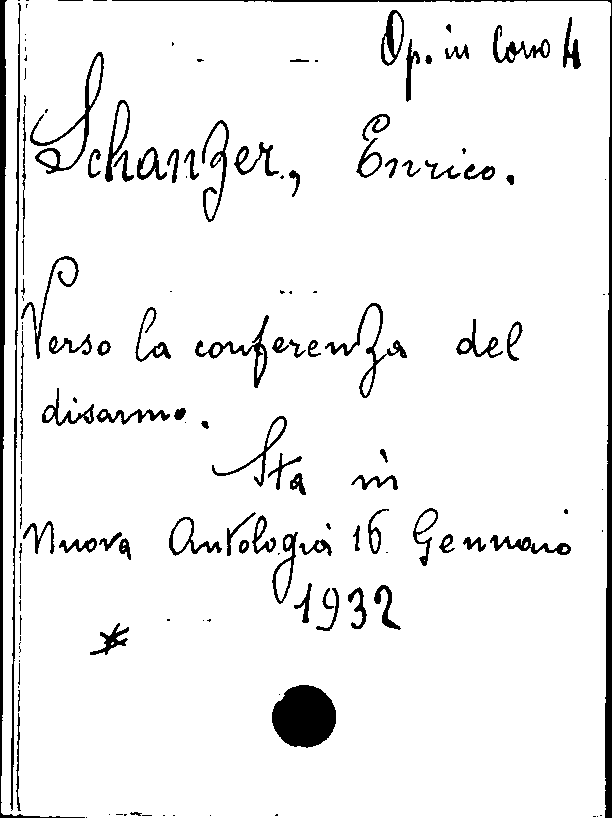 Op. in Corso 4
Schanzer, Enrico.
Verso la conferenza del
disarmo.
Sta in
Nuova Antologia 16 Gennaio
1932
*